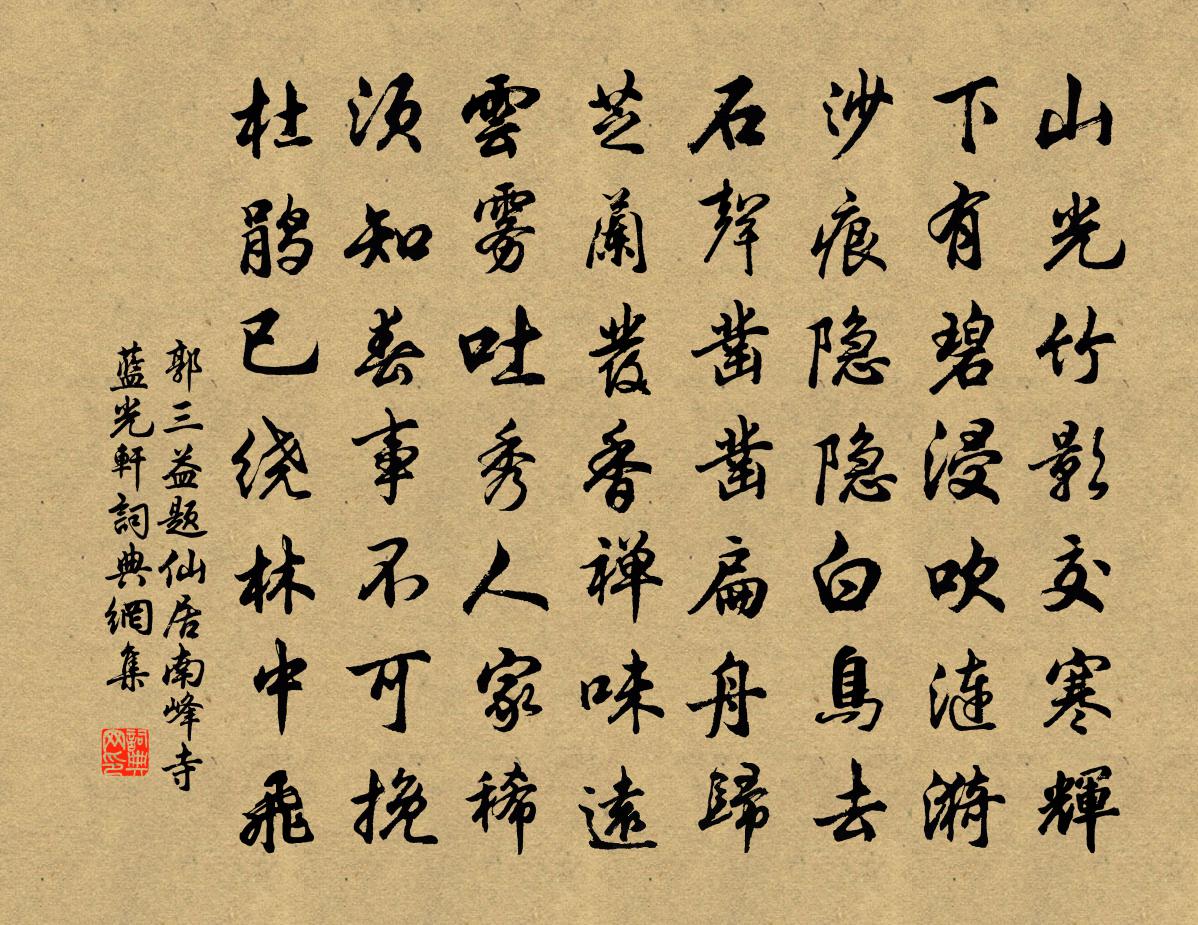 山光竹影交寒輝
下有碧浸吹漣漪
沙痕隐隐白鳥去
石聲凿凿扁舟歸
芝蘭發香禅味遠
雲雾吐秀人家稀
须知春事不可挽
杜鹃已绕林中飛
郭三益题仙居南峰寺
藍光軒詞典網集
詞典网印